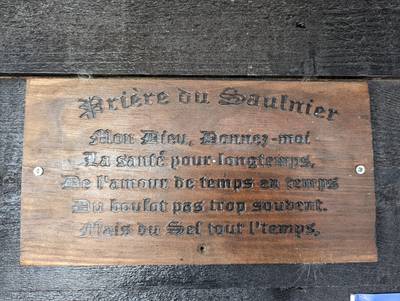 Prière du Saulnier
Mon Dieu, Donnez-moi
La santé pour longtemps,
De l'amour de temps en temps
Du boulot pas trop souvent.
Mais du Sel tout l'temps,